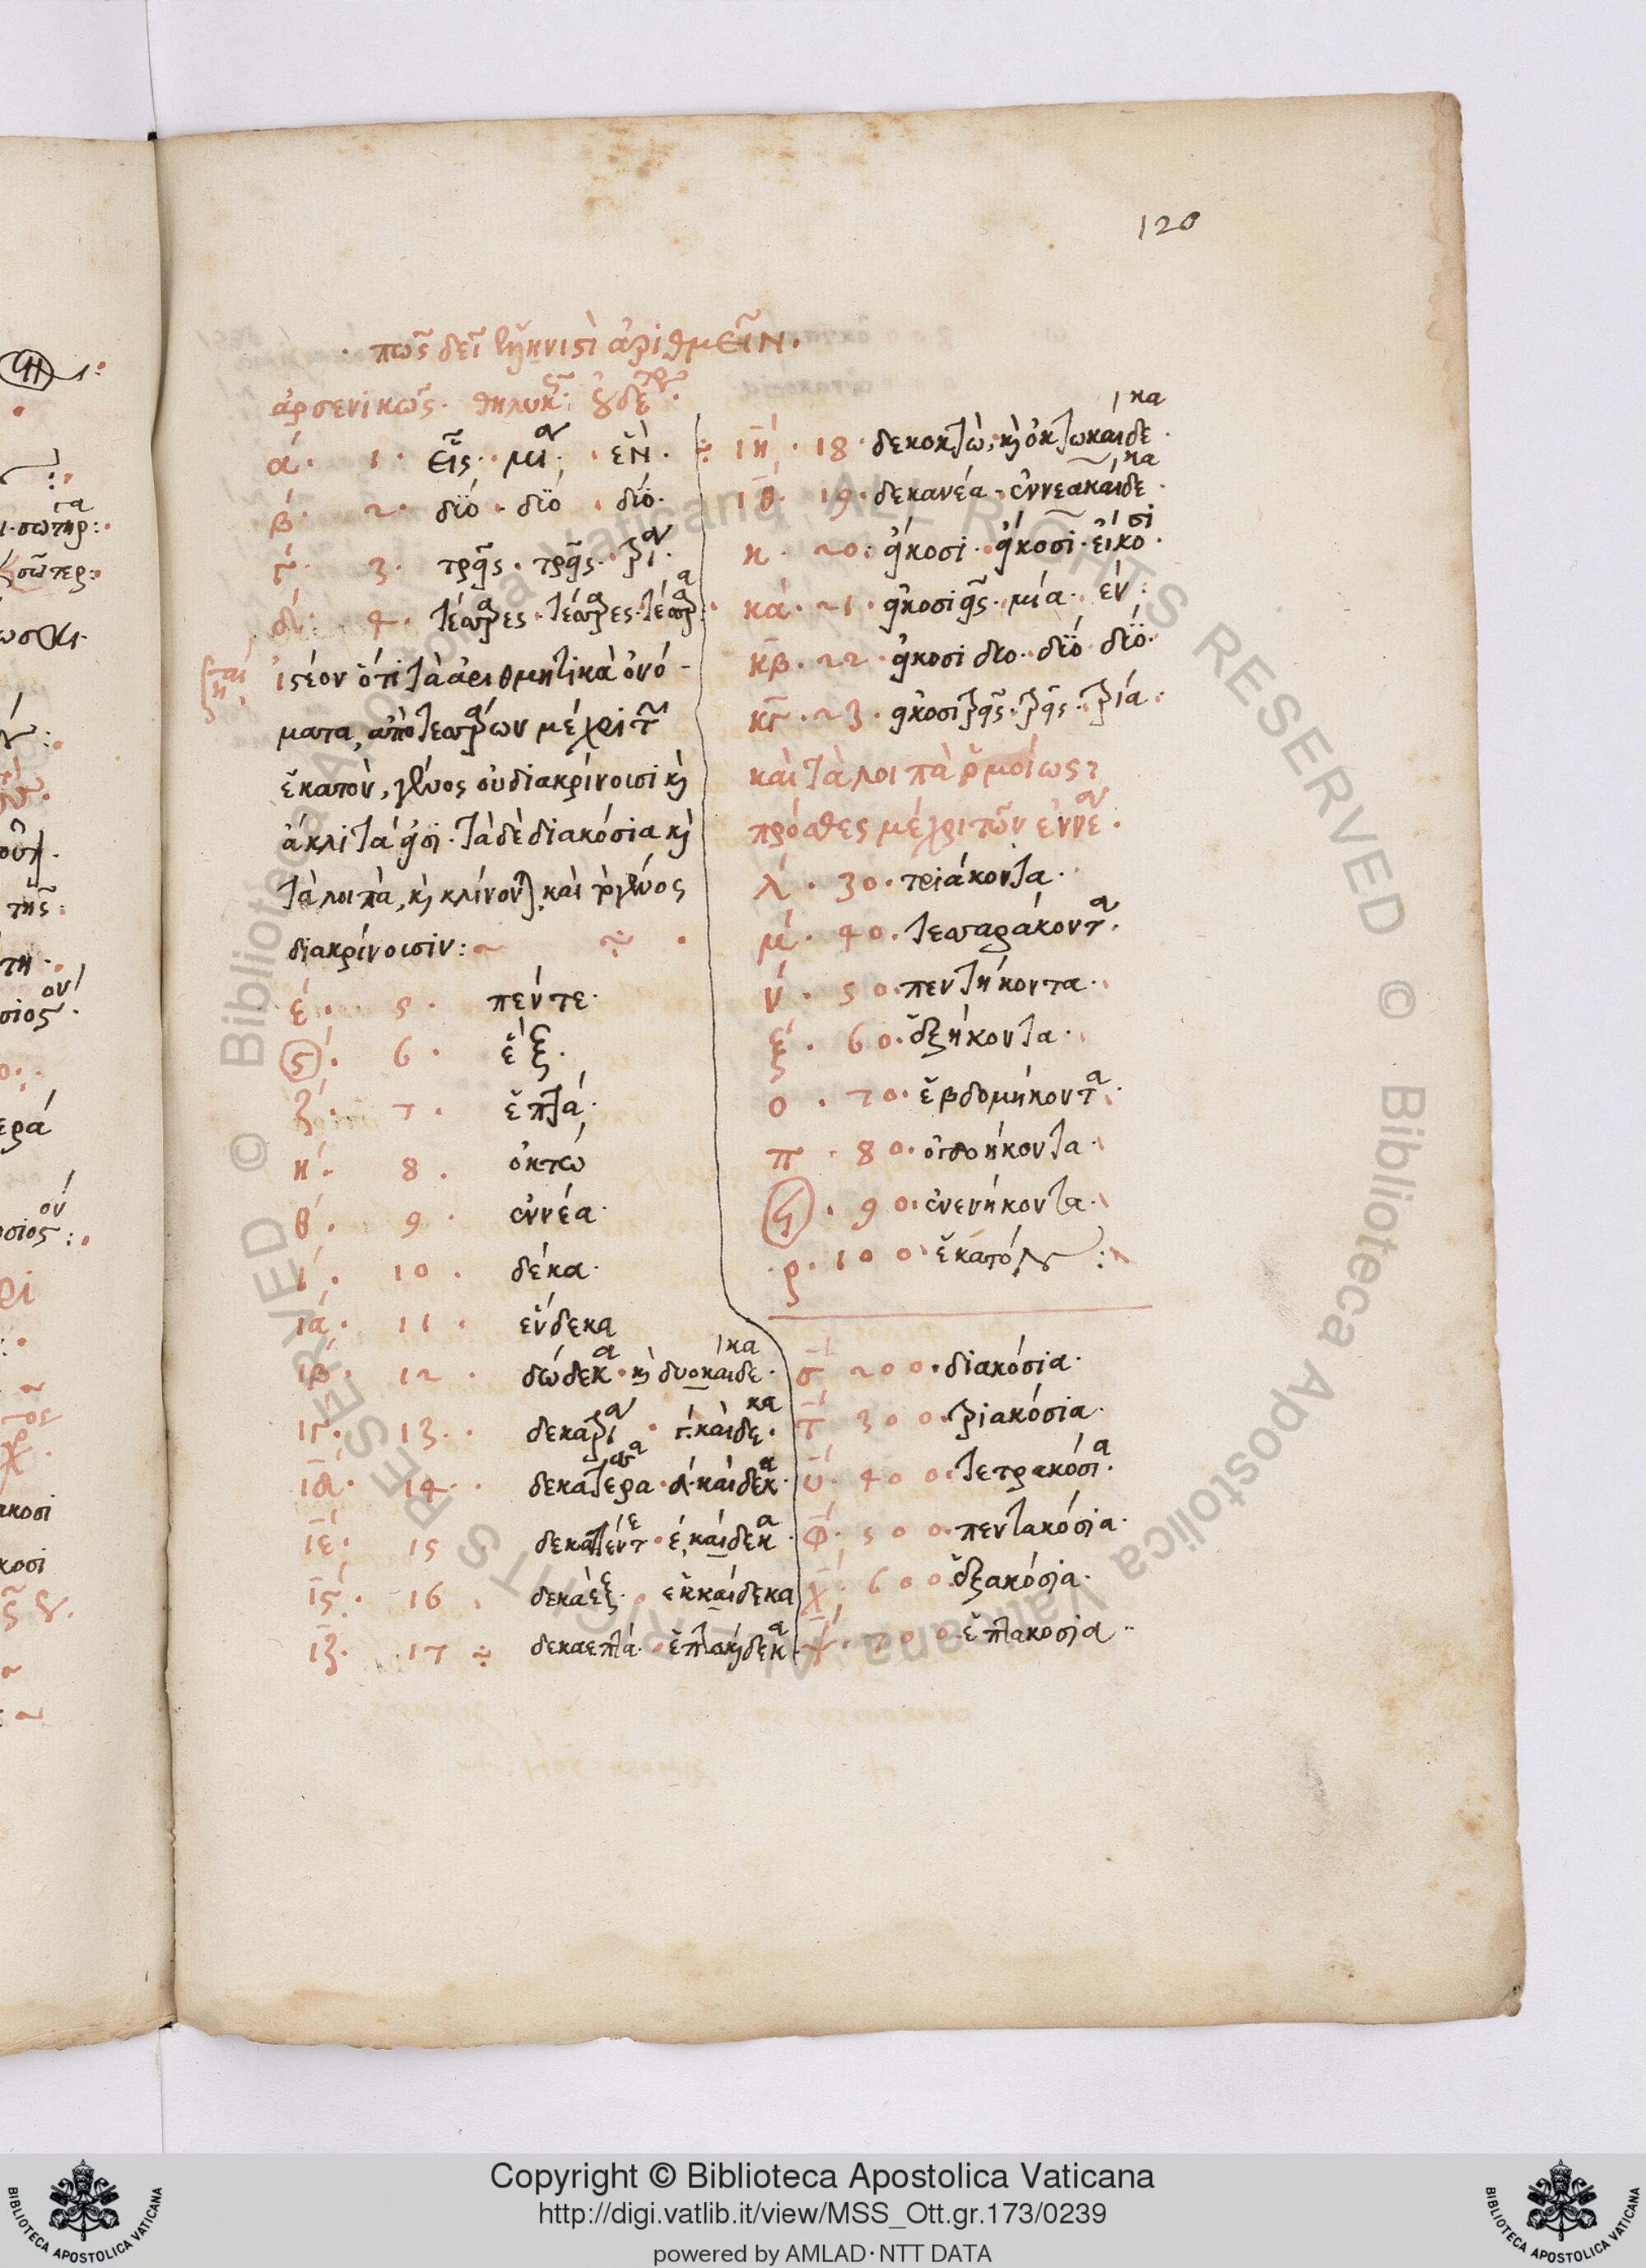 120
· πῶς δεῖ ἑλληνιστὶ ἀριθμεῖν.
ἀρσενικῶς. θηλυκῶς. οὐδετέρ.
ά. 1. εἷς. μία. ἓν.
β́. 2. δϊό. δϊό. δϊό.
γ́. 3. τρεῖς. τρεῖς. τρία.
δ́. 4. τέσσαρες. τέσσαρες. τέσσαρα.
ἰστέον ὅτι τὰ ἀριθμητικὰ ὀνό-
ματα, ἀπὸ τεσσάρων μέχρι τῶν
ἕκατον, γένος οὐ διακρίνοισι κὶ
ἄκλιτά εἰσι. τὰ δὲ διακόσια κὶ
τὰ λοιπὰ, κὶ κλίνονται. καὶ τὸ γένος
διακρίνοισιν:~
έ. 5. πέντε.
ς́. 6. ἕξ.
ζ́. 7. ἕπτά.
ή. 8. ὀκτώ
θ́. 9. ἐννέα.
ί. 10. δέκα.
ιά. 11. ἕνδεκα
ιβ́. 12. δώδεκα. κὶ δυοκαίδεκα.
ιγ. 13. δεκατρία. γ́. καὶδεκα.
ιδ. 14. δεκατέσσερα. δ́. καίδεκα.
ιε. 15 δεκαπέντε. έ. καίδεκα.
ις. 16. δεκάεξ. ἑκκαίδεκα
ιζ. 17 δεκαεπτά. ἑπτακαίδεκα.
ιη. 18. δεκοκτὼ, κὶ ὀκτωκαίδεκα.
ιθ. 19. δεκανέα. ἐννεακαίδεκα.
κ. 20. εἴκοσι. εἴκοσι. εἴκοσι.
κά. 21. εἰκοσιεῖς. μία. ἕν:
κβ. 22. εἴκοσι διο. δϊό. δϊό.
κγ. 23. εἰκοσιτρεῖς. τρεῖς. τρία.
καὶ τὰ λοιπὰ ὁμοίως
πρόσθες μέχρι τῶν ἐννέα.
λ́. 30. τριάκοντα.
μ́. 40. τεσσαράκοντα.
ν́. 50. πεντήκοντα.
ξ́. 60. ἑξήκοντα.
ο. 70. ἑβδομήκοντα.
π. 80. ὀγδοήκοντα.
ϟ. 90. ἐνενήκοντα.
ρ. 100 ἕκατόν:
σ 200. διακόσια.
τ 300. τριακόσια.
υ. 400. τετρακόσια.
φ. 500. πεντακόσια.
χ. 600. ἑξακόσια.
ψ. 700. ἑπτακοσια..
Copyright © Biblioteca Apostolica Vaticana
http://digi.vatlib.it/view/MSS_Ott.gr.173/0239
powered by AMLAD·NTT DATA
BIBLIOTECA APOSTOLICA VATICANA
BIBLIOTECA APOSTOLICA VATICANA